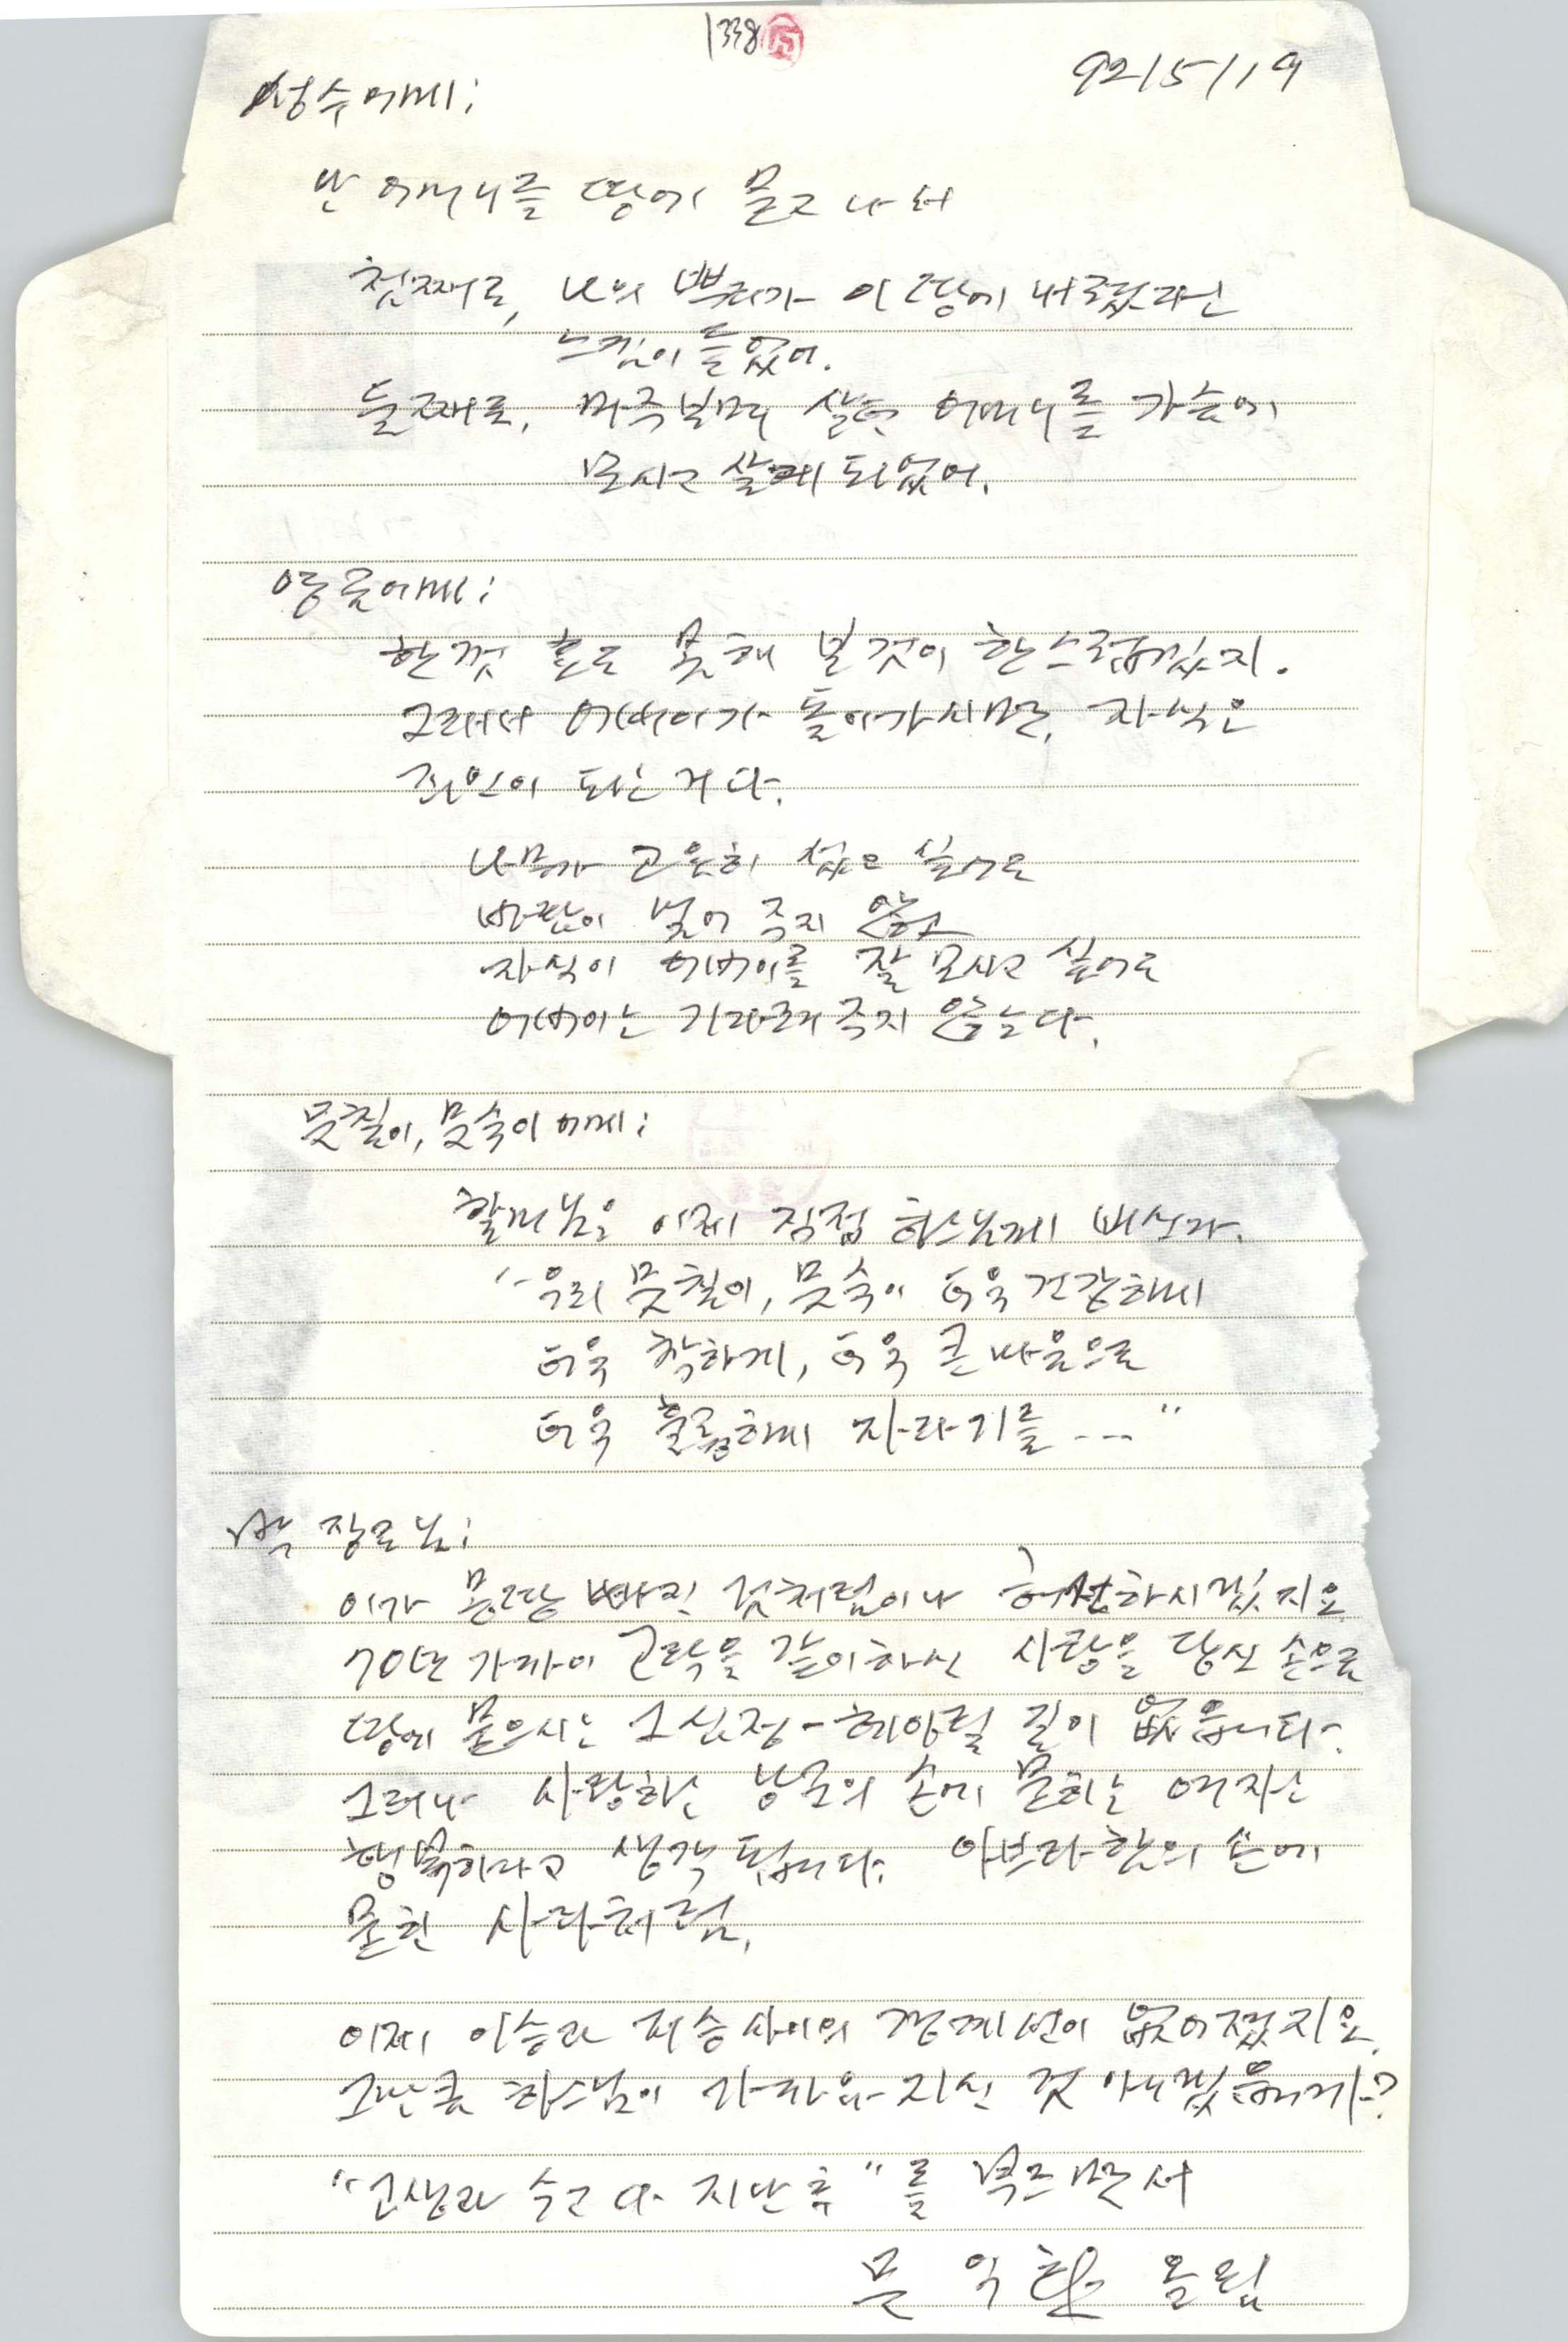 1338
92/5/19
성수에게;
난 어머니를 땅에 묻고 나서
첫째로, 나의 뿌리가 이 땅에 내렸다는
느낌이 들었어.
둘째로, 마주보며 살던 어머니를 가슴에
모시고 살게 되었어.
영금에게;
한껏 효도 못해 본 것이 한스럽겠지.
그래서 어버이가 돌아가시면, 자식은
죄인이 되는 거다.
나무가 고요히 섰고 싶어도
바람이 멎어 주지 않고
자식이 어버이를 잘 모시고 싶어도
어버이는 기다려 주지 않는다.
문칠이, 문숙이에게;
할머님은 이제 직접 하느님께 비신다.
"우리 문칠이, 문숙이 더욱 건강하게
더욱 착하게, 더욱 큰 마음으로
더욱 훌륭하게 자라기를 ---"
박 장로님;
이가 몽땅 빠진 것처럼이나 허전하시겠지요
70년 가까이 고락을 같이하신 사랑을 당신 손으로
땅에 묻으시는 그 심정-헤아릴 길이 없읍니다.
그러나 사랑하는 남군의 손에 묻히는 여자는
행복하다고 생각됩니다. 아브라함의 손에
묻힌 사라처럼.
이제 이승과 저승 사이의 경계선이 없어졌지요.
그만큼 하느님이 가까와지신 것 아니겠읍니까?
"고생과 수고 다 지난 후"를 부르면서
문 익환 올림